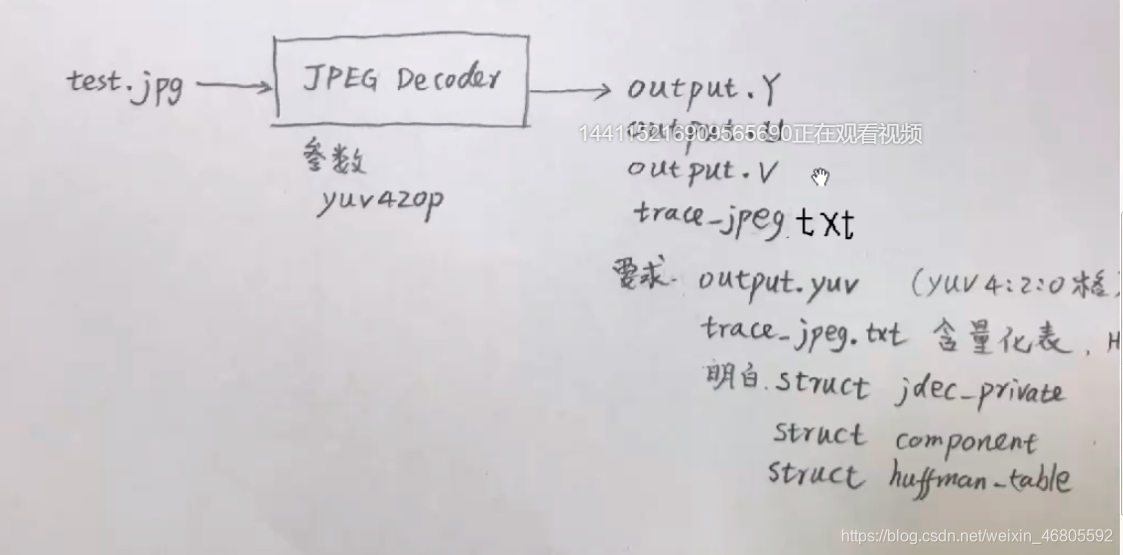 test.jpg
JPEG Decoder
参数
yuv420p
output.Y
144115216909565690正在观看视频
output.U
output.V
trace_jpeg.txt
要求. output.yuv (yuv4:2:0格
trace_jpeg.txt 含量化表, H
明白. struct jdec_private
struct component
struct huffman_table
https://blog.csdn.net/weixin_46805592